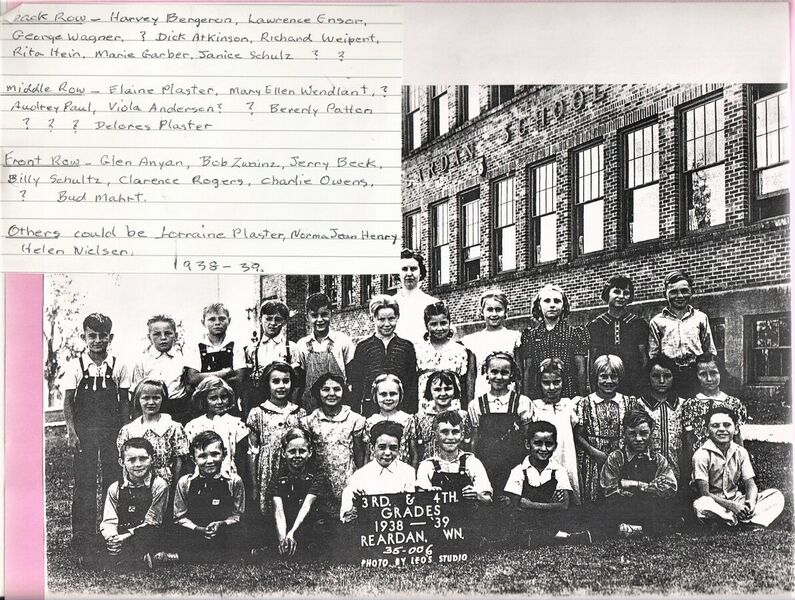 Back Row - Harvey Bergeron, Lawrence Ensor,
George Wagner, ? Dick Atkinson, Richard Weipert,
Rita Hein, Marie Garber, Janice Schulz ? ?
Middle Row - Elaine Plaster, Mary Ellen Wendlant, ?
Audrey Paul, Viola Anderson? ? Beverly Patton
? ? ? Delores Plaster
Front Row - Glen Anyan, Bob Zwinz, Jerry Beck,
Billy Schultz, Clarence Rogers, Charlie Owens,
? Bud Mahrt.
Others could be Lorraine Plaster, Norma Jean Henry
Helen Nielsen,
1938-39.
REARDAN SCHOOL
3RD. & 4TH.
GRADES
1938 — '39
REARDAN, WN.
35-006
PHOTO BY LEO'S STUDIO